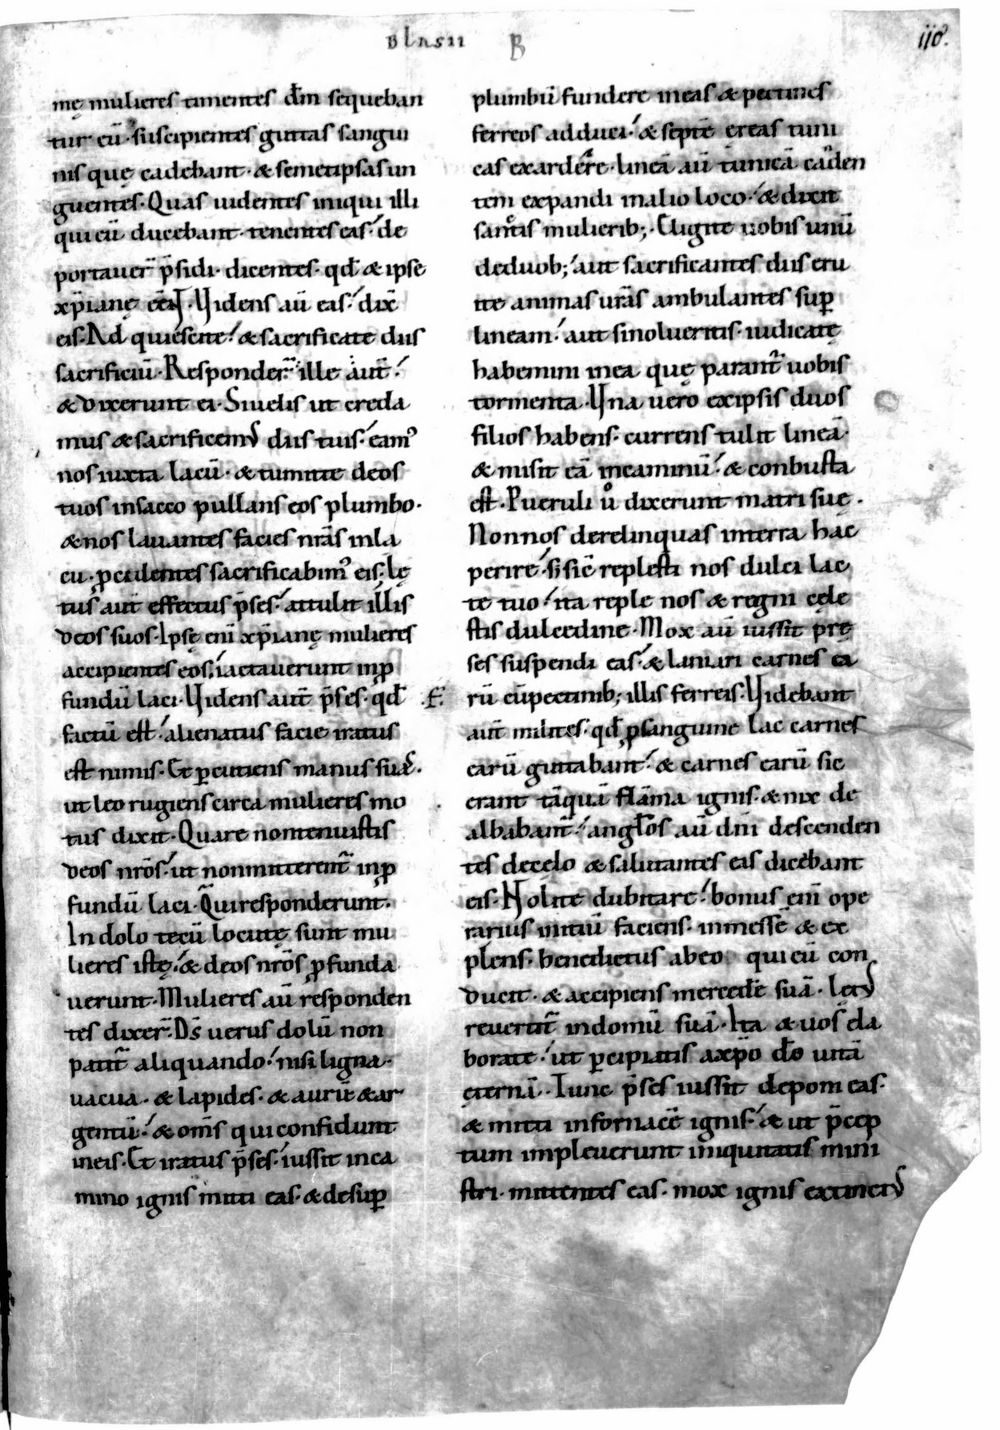 BLASII B
110.
mę mulieres timentes dm̄ sequeban
tur eū· suscipientes guttas sangui
nis quę cadebant· & semetipsas un
guentes· Quas uidentes iniqui illi
qui eū ducebant· tenentes eas· de
portauer̄ p̄sidi· dicentes· qđ & ipse
xp̄ianę Videns aū eas· dix̄
eis· Ad quiescite· & sacrificate diis
sacrificiū· Responder̄ ille aut̄·
& dixerunt ei· Si uelis ut creda
mus & sacrificem᾽ diis tuis· eam᾽
nos iuxta lacū· & tu mitte deos
tuos in sacco pullans eos plumbo·
& nos lauantes facies nr̄as in la
cu· pcidentes sacrificabim᾽ eis· Lę
tus aut̄ effectus p̄ses· attulit illis
deos suos· Ipsę eni xp̄ianę mulieres
accipientes eos· iactauerunt in p
fundū laci· Videns aut̄ p̄ses· qđ
factū est· alienatus facie iratus
est nimis· Et pcutiens manus suas·
ut leo rugiens circa mulieres mo
tus dixit· Quare non tenuistis
deos nr̄os· ut non mitterent̄ in p
fundū laci· Qui responderunt·
In dolo tecū locutę sunt mu
lieres istę· & deos nr̄os p funda
uerunt· Mulieres aū responden
tes dixer̄· Ds̄ uerus dolū non
patit̄ aliquando· nisi ligna·
uacua· & lapides· & aurū & ar
gentū· & om̄s qui confidunt
in eis· Et iratus p̄ses· iussit in ca
mino ignis mitti eas· & desup
plumbū fundere in eas & pectines
ferreos adduci· & septē ereas tuni
cas exardere· lineā aū tunicā cađen
tem expandi in alio loco· & dixit
sanctis mulierib;· Eligite uobis unū
de duob; aut sacrificantes diis eru
ite animas ur̄as ambulantes sup
lineam· aut si nolueritis· iudicatę
habemini in ea quę parant̄ uobis
tormenta· Vna uero ex ipsis duos
filios habens· currens tulit lineā·
& misit eā in caminū· & conbusta
est· Pueruli ů dixerunt matri suę·
Non nos derelinquas in terra hac
perire· s; sic replesti nos dulci lac
te tuo· ita reple nos & regni cęle
stis dulcedine· Mox aū iussit prę
ses suspendi eas· & laniari carnes ea
rū cū pectinib; illis ferreis· Videbant ·f·
aut̄ milites· qđ p sanguine lac carnes
earū guttabant· & carnes earū sic
erant tāquā flāma ignis· & nix de
albabant· anglos aū dnī descenden
tes de celo & salutantes eas dicebant
eis· Nolite dubitare· bonus eni ope
rarius initiū faciens· in messe & ex
plens· benedictus ab eo qui eū con
ducit· & accipiens mercedē suā· Let᾽
reuertit̄ in domū suā· Ita & uos ela
borate· ut pcipiatis a xp̄o do uitā
ęternā· Tunc p̄ses iussit deponi eas·
& mitti in fornacē ignis· & ut p̄cep
tum impleuerunt iniquitatis mini
stri· mittentes eas· mox ignis extinct᾽